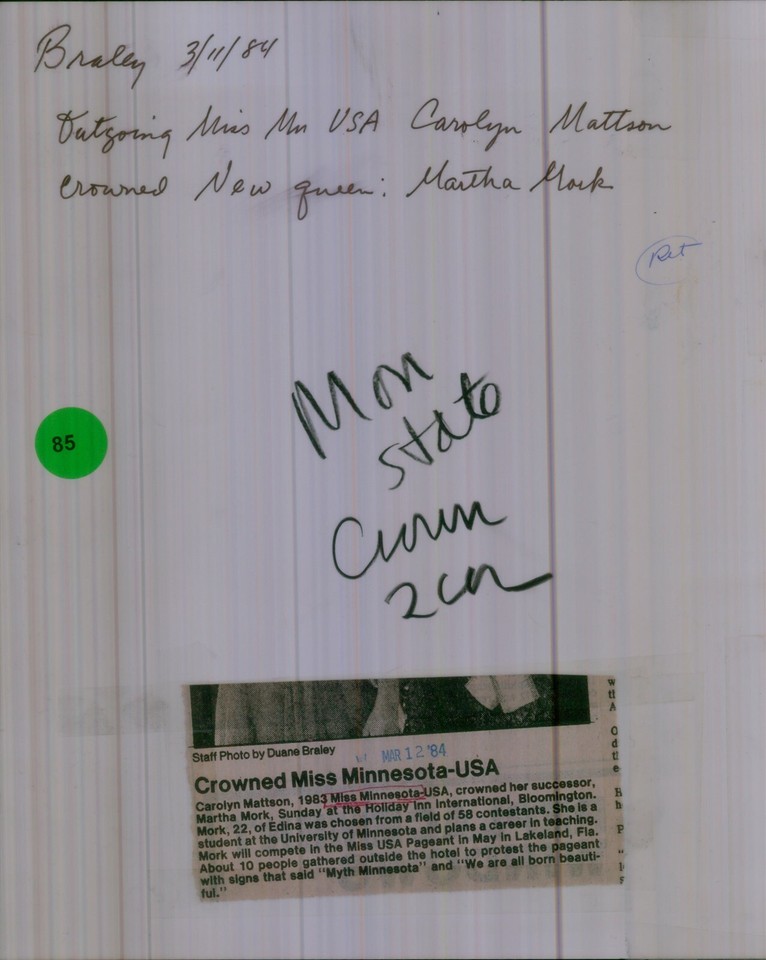 Braley 3/11/84
Outgoing Miss Mn USA Carolyn Mattson
crowned New queen: Martha Mork
Ret
Mon
state
Crown
2 col
85
Staff Photo by Duane Braley
MAR 12 '84
Crowned Miss Minnesota-USA
Carolyn Mattson, 1983 Miss Minnesota-USA, crowned her successor,
Martha Mork, Sunday at the Holiday Inn International, Bloomington.
Mork, 22, of Edina was chosen from a field of 58 contestants. She is a
student at the University of Minnesota and plans a career in teaching.
Mork will compete in the Miss USA Pageant in May in Lakeland, Fla.
About 10 people gathered outside the hotel to protest the pageant
with signs that said "Myth Minnesota" and "We are all born beauti-
ful."